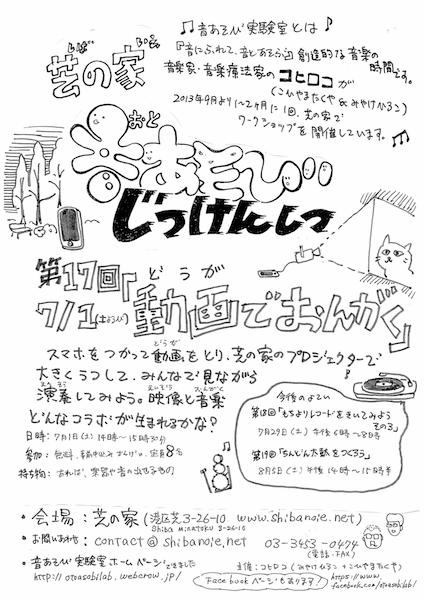 芝の家
しば いえ
♫音あそび実験室とは♪
『音にふれて、音とあそぶ』創造的な音楽の時間です。
音楽家・音楽療法家のコヒロコが
(こひやまたくや&みやけひろこ)
2013年9月より1〜2ヶ月に1回、芝の家で
ワークショップを開催しています。♫
おと
音あそび
じっけんしつ
第17回「どうが
7/1(土ようび)動画でおんがく」
スマホをつかって動画をとり、芝の家のプロジェクターで
どうが
大きくうつして、みんなで見ながら
演奏してみよう。映像と音楽
えんそう えいぞう おんがく
どんなコラボが生まれるかな?
日時:7月1日(土)14時〜15時30分
参加:無料、定員8名
持ち物:あれば、楽器や音の出せるもの
今後のよてい
第18回「もちよりレコードをきいてみよう
その3」
7月29日(土)午後6時〜8時
第19回「ちんどん太鼓をつくろう」
8月5日(土)午後14時〜15時半
・会場:芝の家(港区芝3-26-10 www.shibanoie.net)
Shiba Minatoku 3-26-10
・お問いあわせ:contact@shibanoie.net 03-3453-0474
(電話・FAX)
・音あそび実験室ホームページできました
http://otoasobilab.webcrow.jp/
主催:コヒロコ(みやけひろこ+こひやまたくや)
Facebookページもあります!
https://www.facebook.com/otoasobilab/